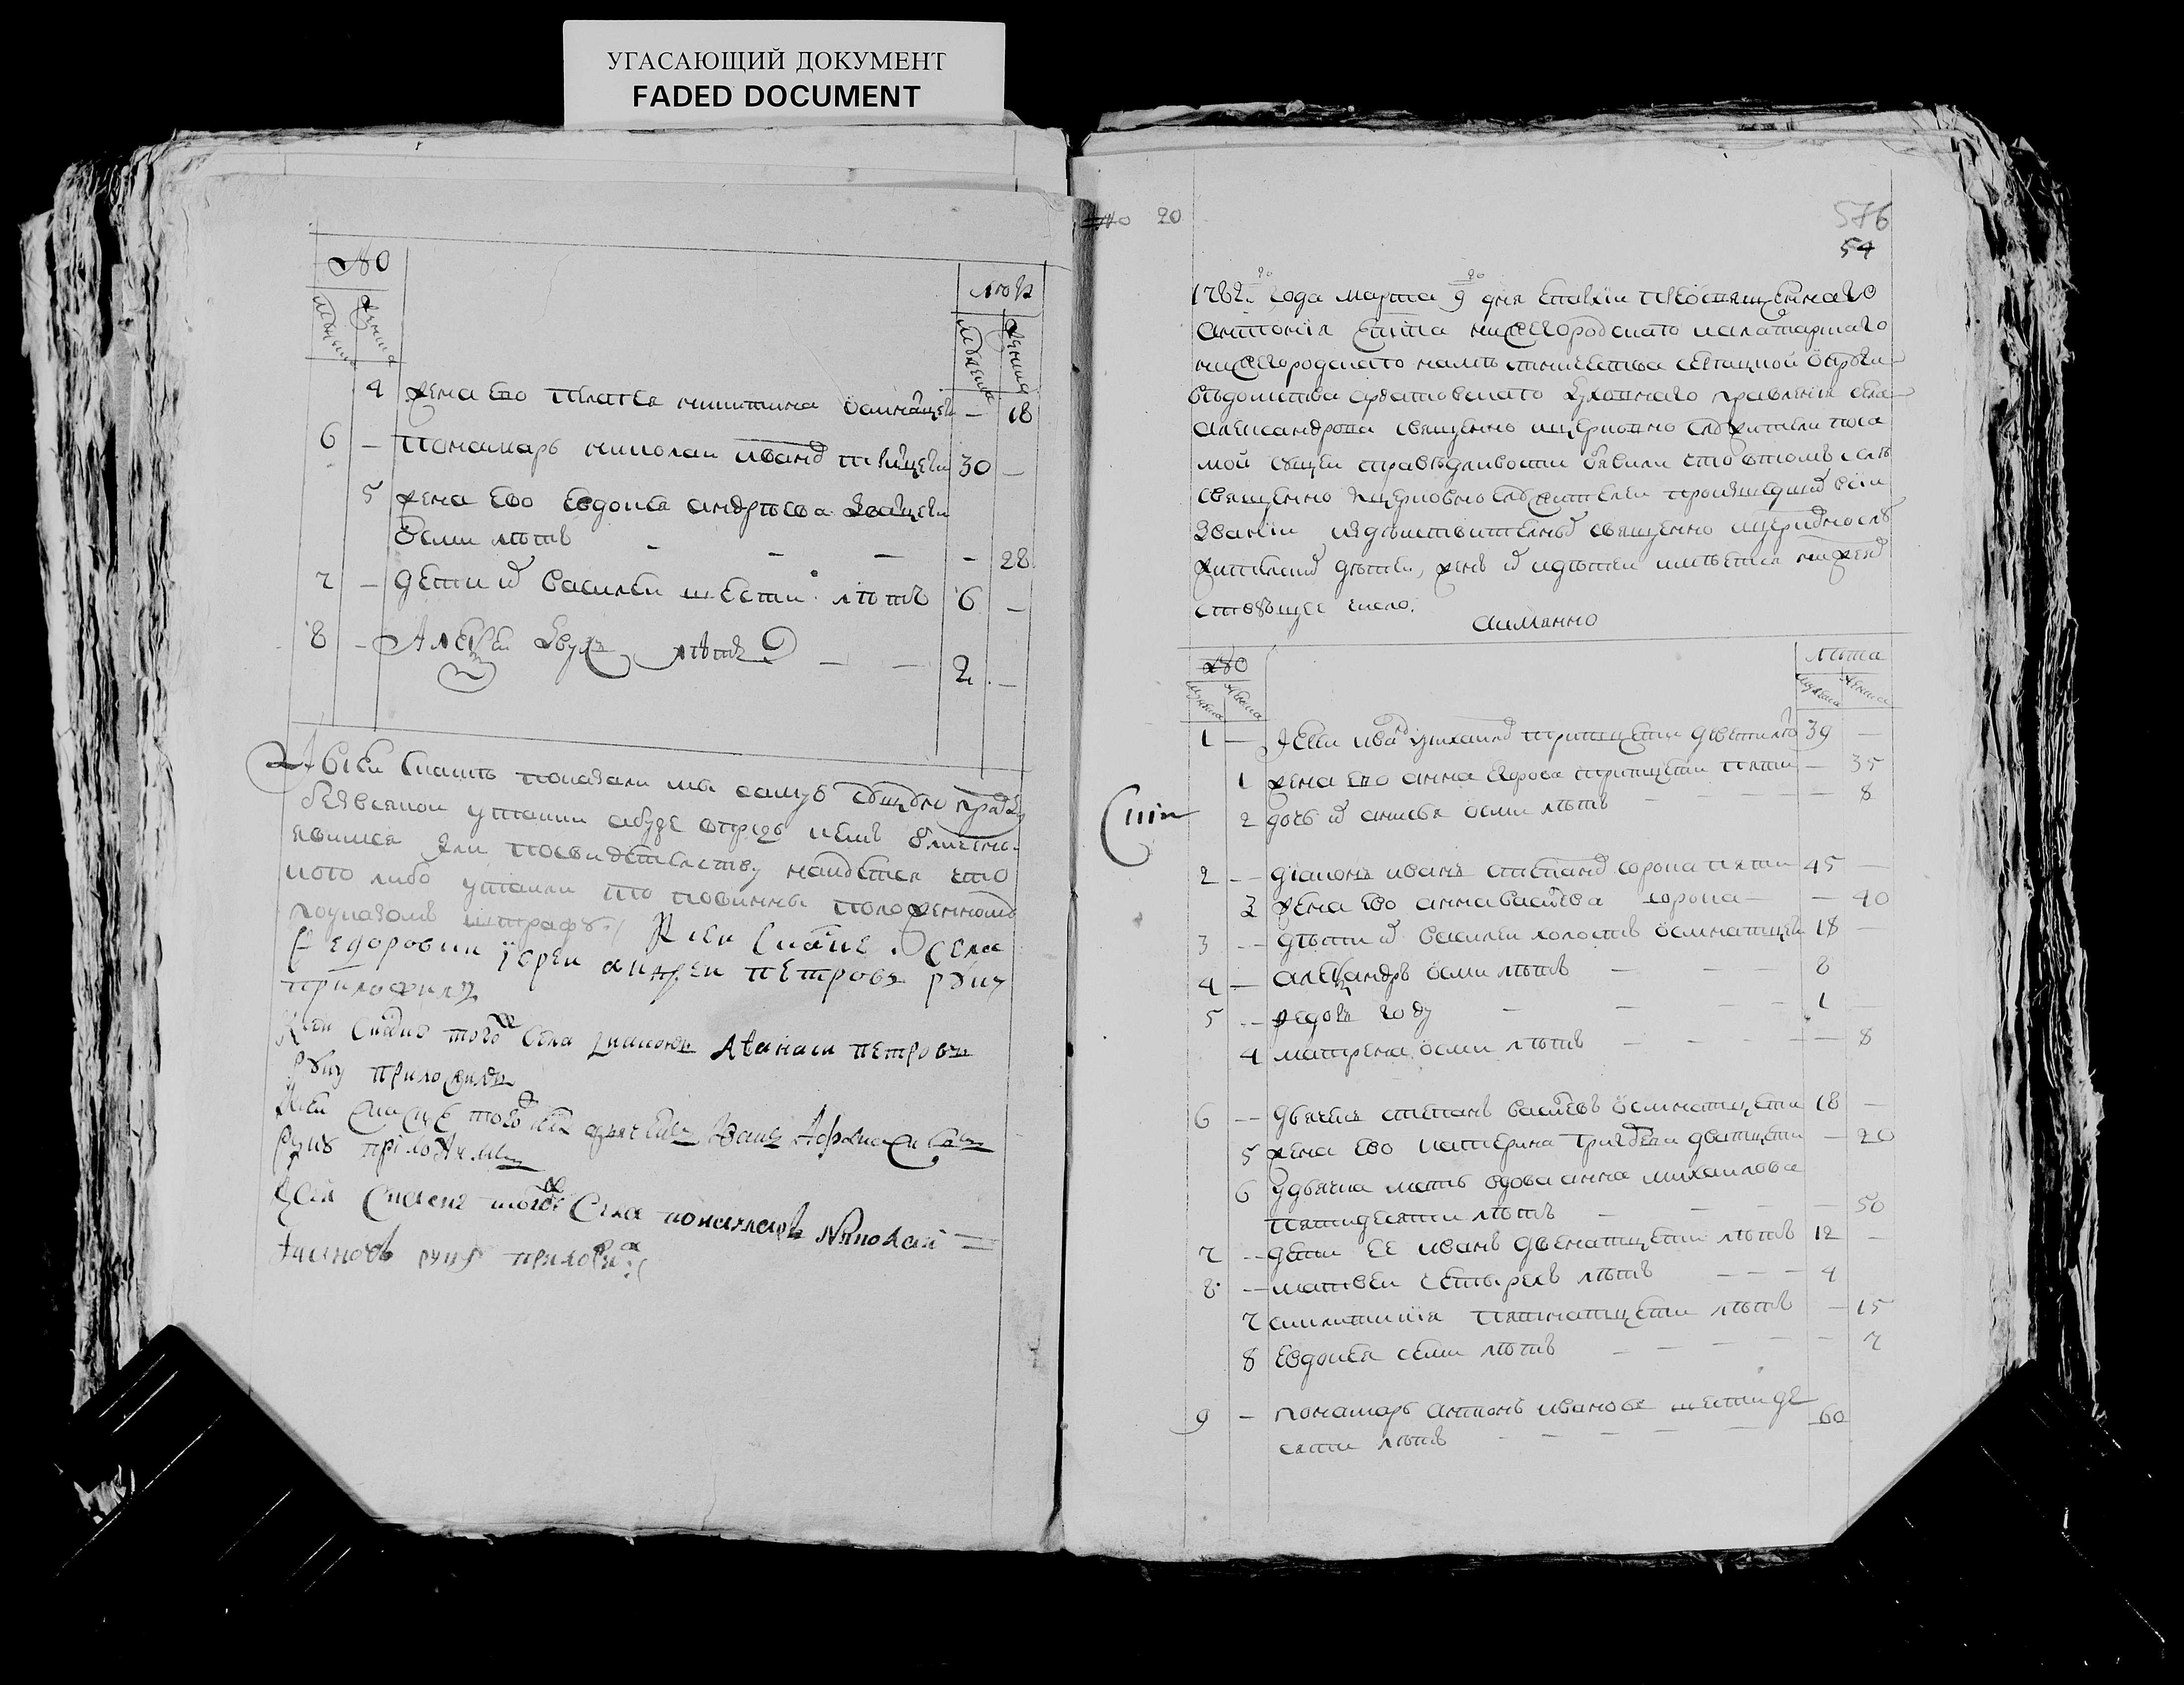 УГАСАЮЩИЙ ДОКУМЕНТ
FADED DOCUMENT
№
мужеска
женска
лета
мужеска
женска
4 жена ево пелагея никитина осмнатцети — 18
6 — пономарь николаи иванов тритцети 30 —
5 жена ево евдокея андреева дватцети
осми летъ — — — — 28
7 — дети их василеи шести летъ 6 —
8 — Алексеи двухъ летъ — — 2 —
А в сеи скаске показали мы самую сущую правду
без всякои утаики а буде впредь кемъ уличены
явимся или по свидетелству наидется что
кого либо утаили то повинны положенному
по указомъ штрафу
К сеи скаске села
Федоровки иереи андреи петровъ руку
приложилъ
К сеи скаске того села диаконъ Афанаси петровъ
руку приложилъ
К сеи скаске того села дьячекъ Иванъ
руку приложилъ
К сей скаске того села пономарь Николай
Ивановъ руку приложил
№ 20
576
54
1782 го года марта 9 го дня епархии преосвященнаго
антония еппа нижегородскаго и алатарскаго
нижегородскаго наместничества округи
ведомства ардатовскаго духовнаго правления села
александрова священно и церковно служители по са
мой сущеи справедливости объявили что в томъ селе
священно и церковно служителеи происшедших в сии
звании и действителных священно и церковнослу
жителских детеи, женъ их и детеи имеется нижеяв
ствующее число.
а имянно
№
мужеска
женска
лета
мужеска
женска
1 — Иереи иван михаилов тритцети девети лет 39 —
1 жена ево анна егорова тритцети пяти — 35
2 дочь их анисья осми летъ — — — 8
2 — диаконъ иванъ степанов сорока пяти 45 —
3 жена ево анна васильева сорока — — 40
3 — дети их василеи холостъ осмнатцети 18 —
4 — александръ осми летъ — — — 8
5 — федоръ году — — — 1 —
4 матрена осми летъ — — — — 8
6 — дьячекъ степанъ васильевъ осмнатцети 18 —
5 жена ево катерина григорьева дватцети — 20
6 у дьячка мать вдова анна михаилова
пятидесяти летъ — — — — 50
7 — дети ее иванъ двенатцети летъ 12 —
8 — матвеи четырехъ летъ — — — 4
7 акилина пятнатцети летъ — 15
8 евдокея семи летъ — — — — 7
9 — пономарь антонъ ивановъ шестиде
сяти летъ — — — — — 60